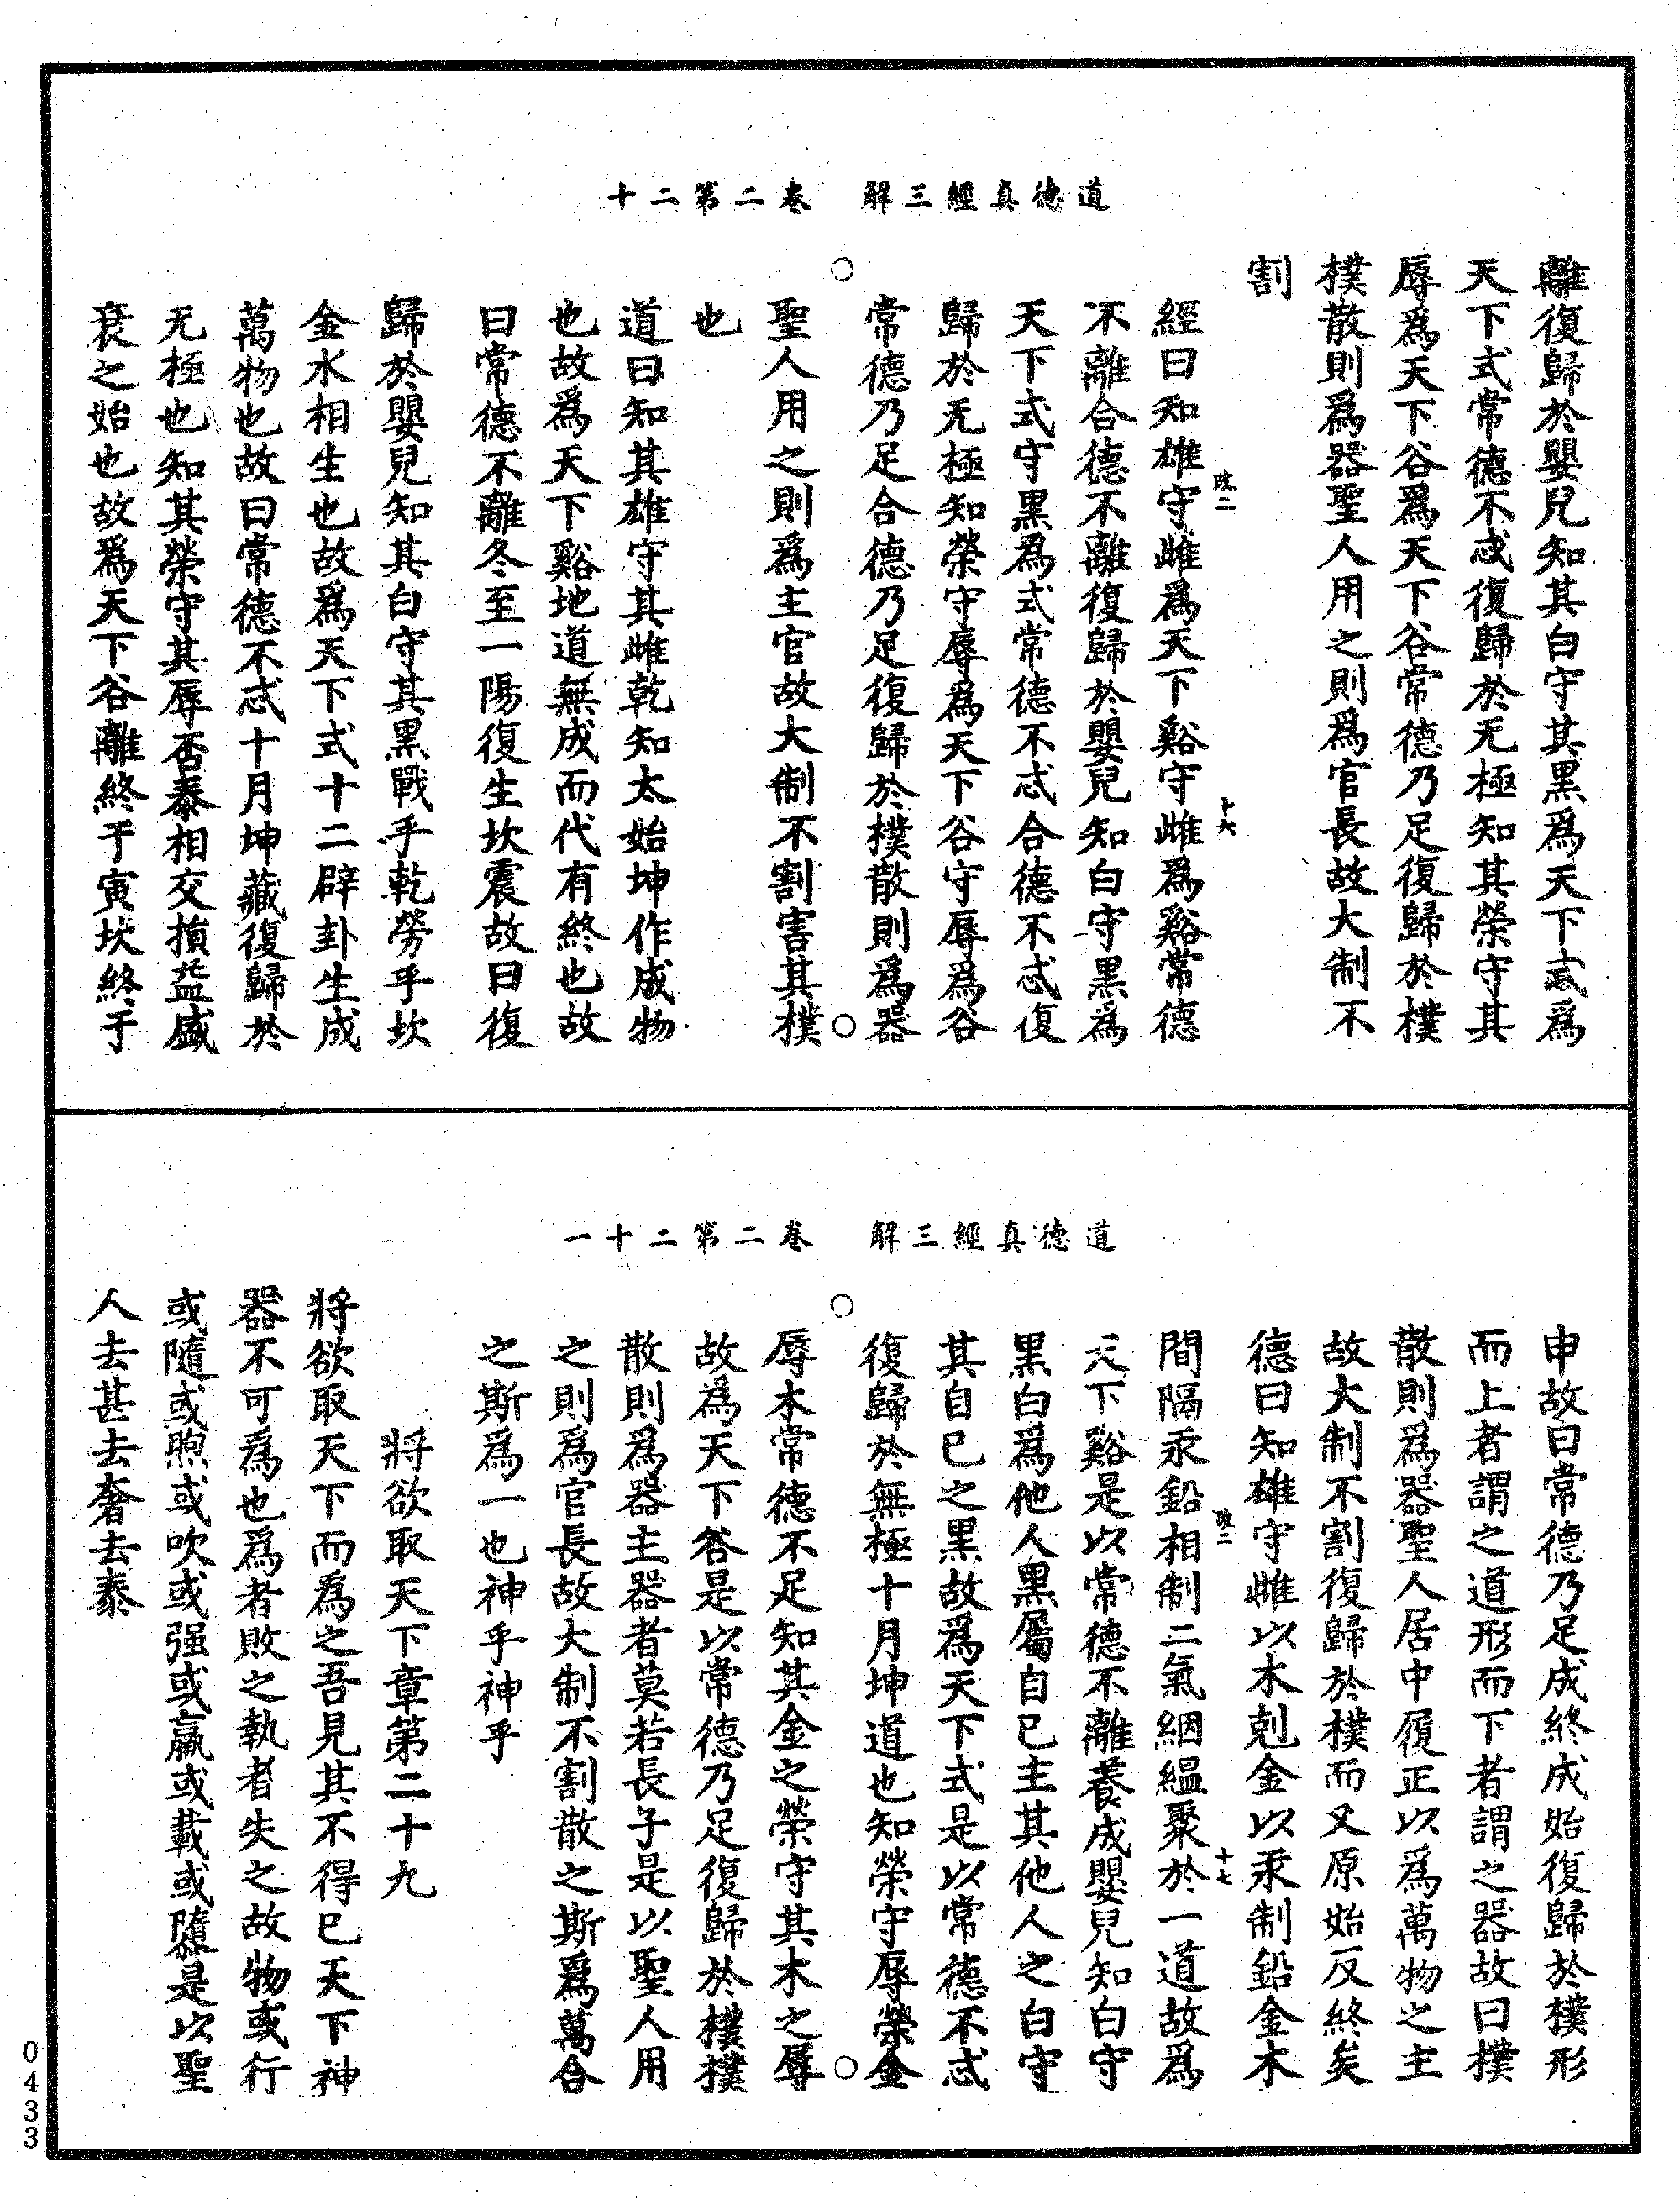 道德真經三解　卷二第二十
離復歸於嬰兒知其白守其黑爲天下式爲
天下式常德不忒復歸於无極知其榮守其
辱爲天下谷爲天下谷常德乃足復歸於樸
樸散則爲器聖人用之則爲官長故大制不
割
經曰知雄守雌爲天下谿守雌爲谿常德
不離合德不離復歸於嬰兒知白守黑爲
天下式守黑爲式常德不忒合德不忒復
歸於无極知榮守辱爲天下谷守辱爲谷
常德乃足合德乃足復歸於樸散則爲器
聖人用之則爲主官故大制不割害其樸
也
道曰知其雄守其雌乾知太始坤作成物
也故爲天下谿地道無成而代有終也故
曰常德不離冬至一陽復生坎震故曰復
歸於嬰兒知其白守其黑戰乎乾勞乎坎
金水相生也故爲天下式十二辟卦生成
萬物也故曰常德不忒十月坤藏復歸於
无極也知其榮守其辱否泰相交損益盛
衰之始也故爲天下谷離終于寅坎終于
道德真經三解　卷二第二十一
申故曰常德乃足成終成始復歸於樸形
而上者謂之道形而下者謂之器故曰樸
散則爲器聖人居中履正以爲萬物之主
故大制不割復歸於樸而又原始反終矣
德曰知雄守雌以木剋金以汞制鉛金木
間隔汞鉛相制二氣絪緼聚於一道故爲
天下谿是以常德不離養成嬰兒知白守
黑白爲他人黑屬自已主其他人之白守
其自已之黑故爲天下式是以常德不忒
復歸於無極十月坤道也知榮守辱榮金
辱木常德不足知其金之榮守其木之辱
故爲天下谷是以常德乃足復歸於樸樸
散則爲器主器者莫若長子是以聖人用
之則爲官長故大制不割散之斯爲萬合
之斯爲一也神乎神乎
將欲取天下章第二十九
將欲取天下而爲之吾見其不得已天下神
器不可爲也爲者敗之執者失之故物或行
或隨或煦或吹或强或羸或載或隳是以聖
人去甚去奢去泰
0433